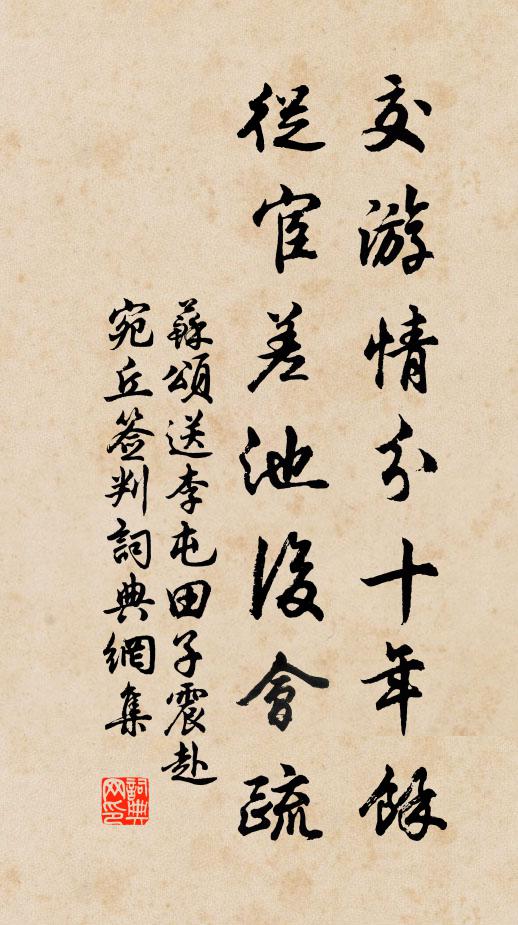 交游情分十年餘
從宦差池後會疏
蘇頌送李屯田子震赴
宛丘簽判詞典網集
詞典
网印